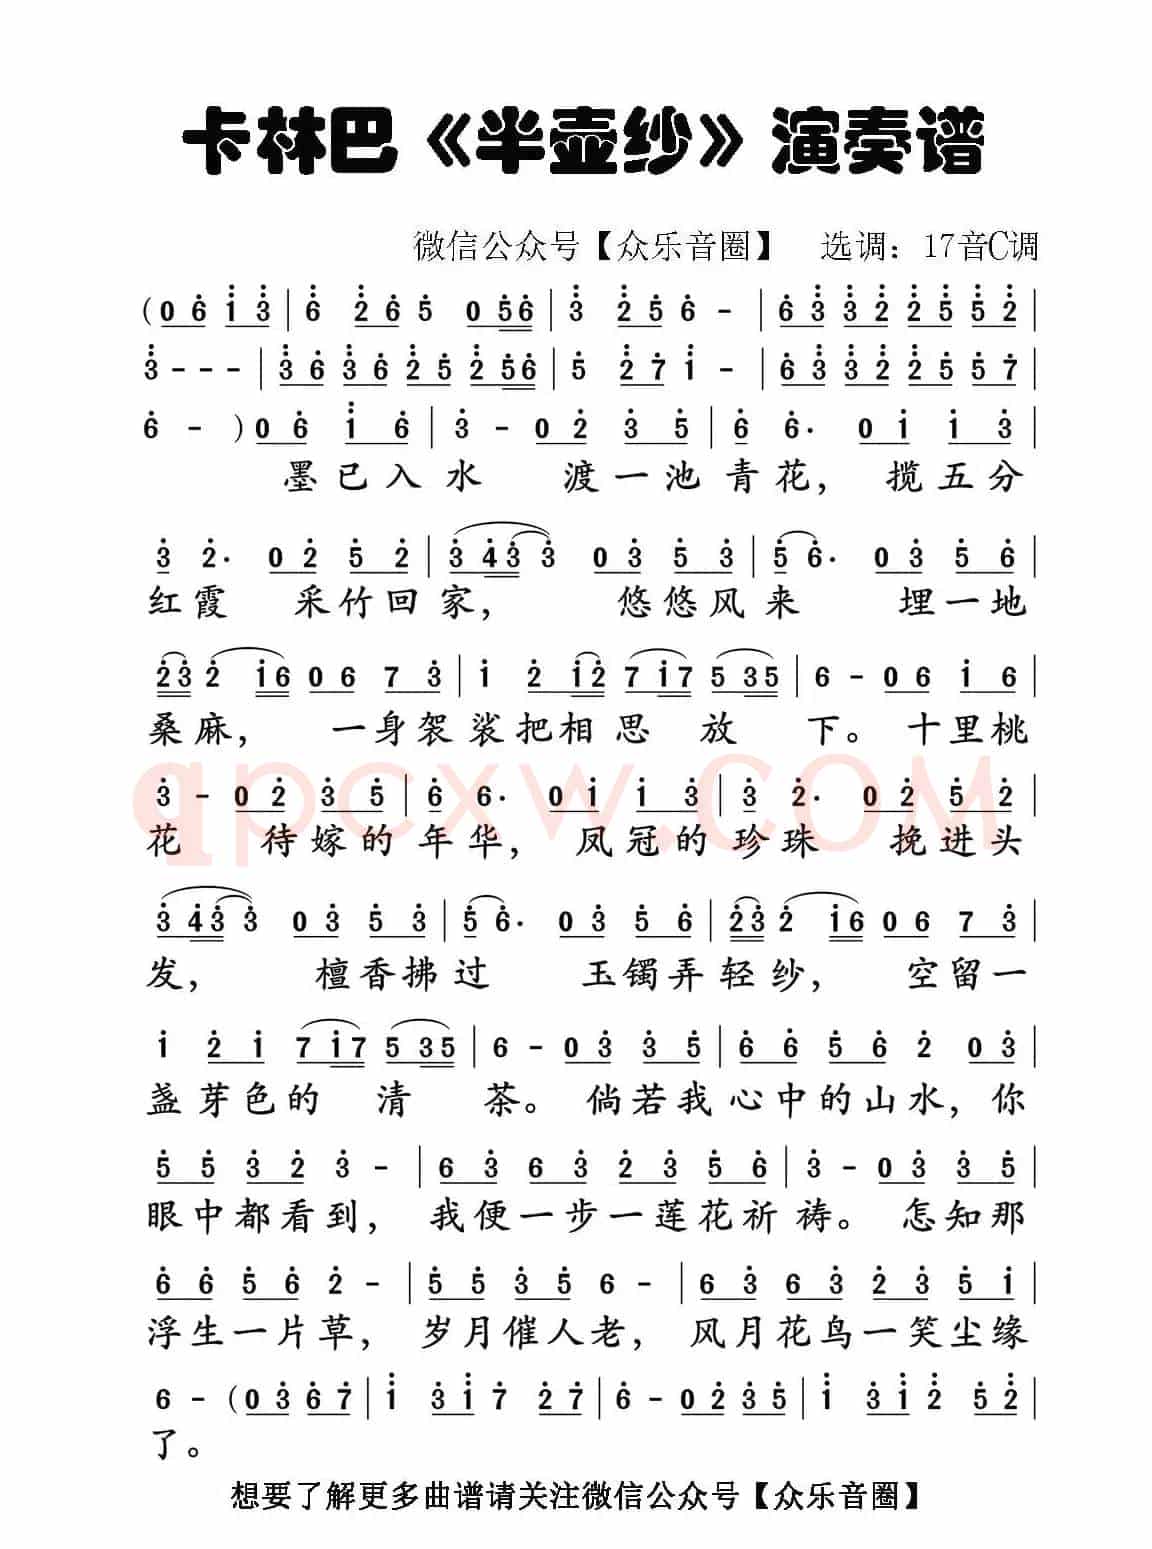 卡林巴《半壶纱》演奏谱
微信公众号【众乐音圈】 选调：17音C调
(0 6 1 3 | 6 2 6 5 0 5 6 | 3 2 5 6 - | 6 3 3 2 2 5 5 2 |
3 - - - | 3 6 3 6 2 5 2 5 6 | 5 2 7 1 - | 6 3 3 2 2 5 5 7 |
6 - ) 0 6 1 6 | 3 - 0 2 3 5 | 6 6· 0 1 1 3 |
墨已入水 渡一池青花，揽五分
3 2· 0 2 5 2 | 3 4 3 3 0 3 5 3 | 5 6· 0 3 5 6 |
红霞 采竹回家， 悠悠风来 埋一地
2 3 2 1 6 0 6 7 3 | 1 2 1 2 7 1 7 5 3 5 | 6 - 0 6 1 6 |
桑麻， 一身袈裟把相思 放 下。十里桃
qpcxw.COM
3 - 0 2 3 5 | 6 6· 0 1 1 3 | 3 2· 0 2 5 2 |
花 待嫁的年华， 凤冠的珍珠 挽进头
3 4 3 3 0 3 5 3 | 5 6· 0 3 5 6 | 2 3 2 1 6 0 6 7 3 |
发， 檀香拂过 玉镯弄轻纱， 空留一
1 2 1 7 1 7 5 3 5 | 6 - 0 3 3 5 | 6 6 5 6 2 0 3 |
盏芽色的 清 茶。 倘若我心中的山水，你
5 5 3 2 3 - | 6 3 6 3 2 3 5 6 | 3 - 0 3 3 5 |
眼中都看到， 我便一步一莲花祈祷。 怎知那
6 6 5 6 2 - | 5 5 3 5 6 - | 6 3 6 3 2 3 5 1 |
浮生一片草， 岁月催人老， 风月花鸟一笑尘缘
6 - (0 3 6 7 | 1 3 1 7 2 7 | 6 - 0 2 3 5 | 1 3 1 2 5 2 |
了。
想要了解更多曲谱请关注微信公众号【众乐音圈】